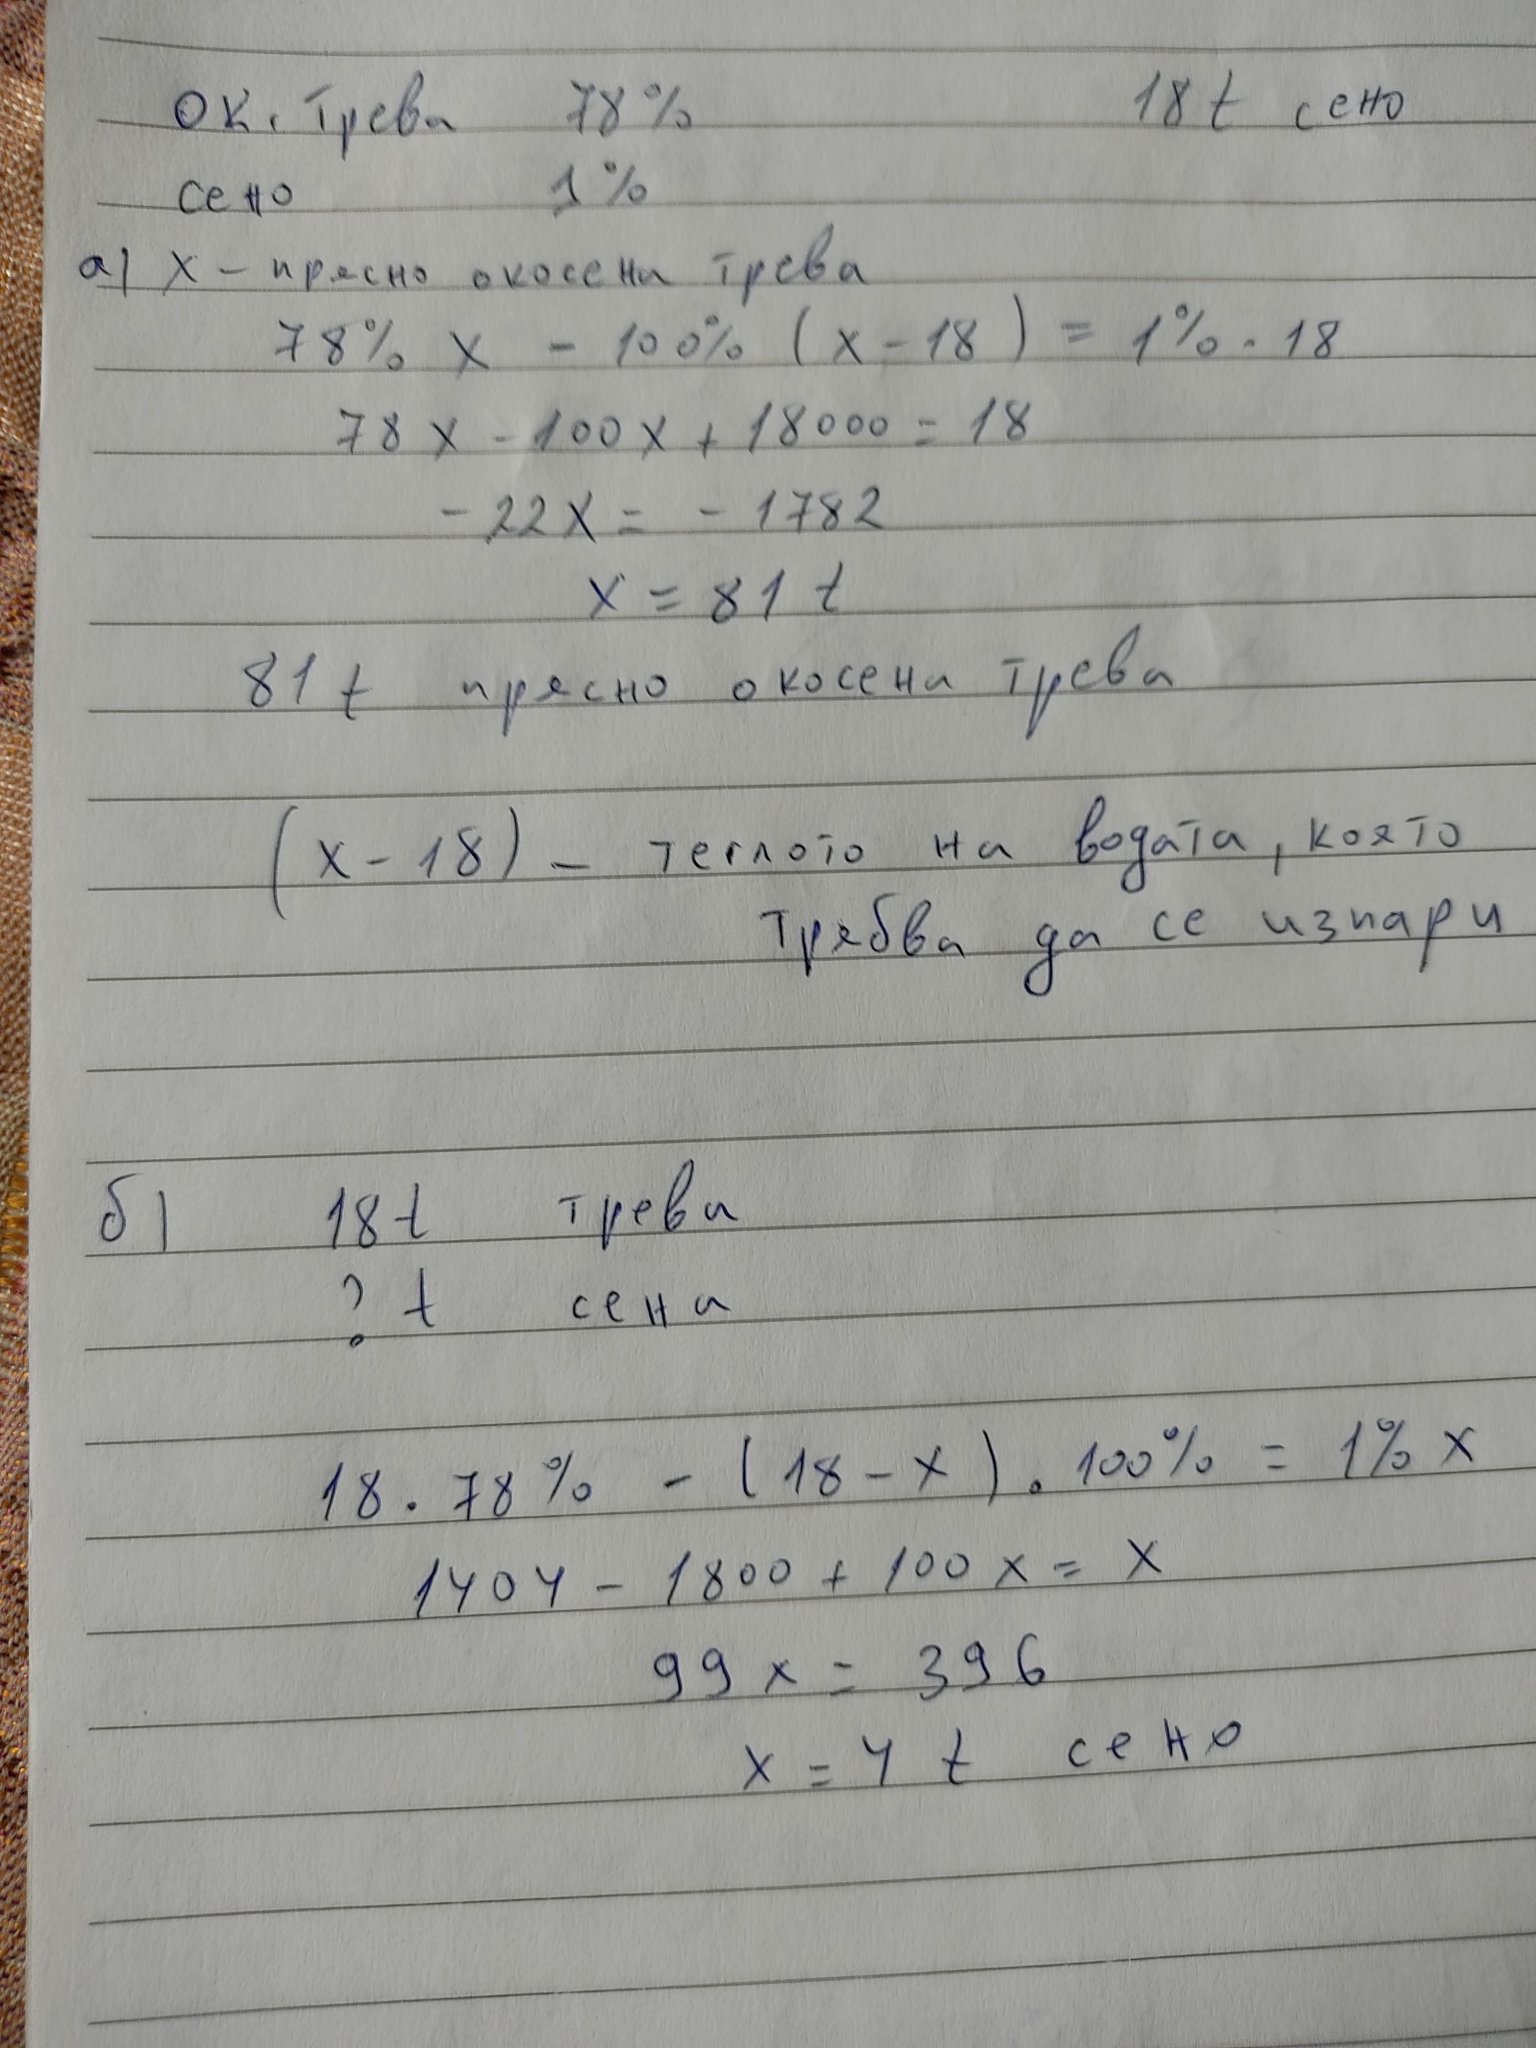 ок. трева 78% 18 t сено
сено 1%
а) x - прясно окосена трева
78% x - 100% (x - 18) = 1% . 18
78x - 100x + 18000 = 18
-22x = - 1782
x = 81 t
81 t прясно окосена трева
(x - 18) - теглото на водата, която
трябва да се изпари
б) 18 t трева
? t сена
18 . 78% - (18 - x) . 100% = 1% x
1404 - 1800 + 100x = x
99x = 396
x = 4 t сено